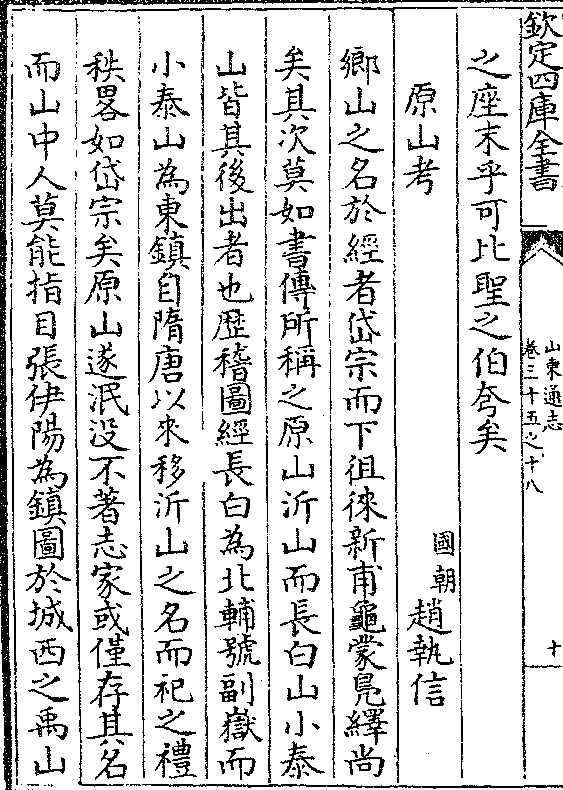 欽定四庫全書
山東通志
卷三十五之十八
十
之座末乎可比聖之伯夸矣
原山考
國朝趙執信
鄉山之名於經者岱宗而下徂徠新甫龜蒙鳧繹尚
矣其次莫如書傳所稱之原山沂山而長白山小泰
山皆其後出者也歴稽圖經長白為北輔號副嶽而
小泰山為東鎮自隋唐以來移沂山之名而祀之禮
秩畧如岱宗矣原山遂泯没不著志家或僅存其名
而山中人莫能指目張伊陽為鎮圖於城西之禹山